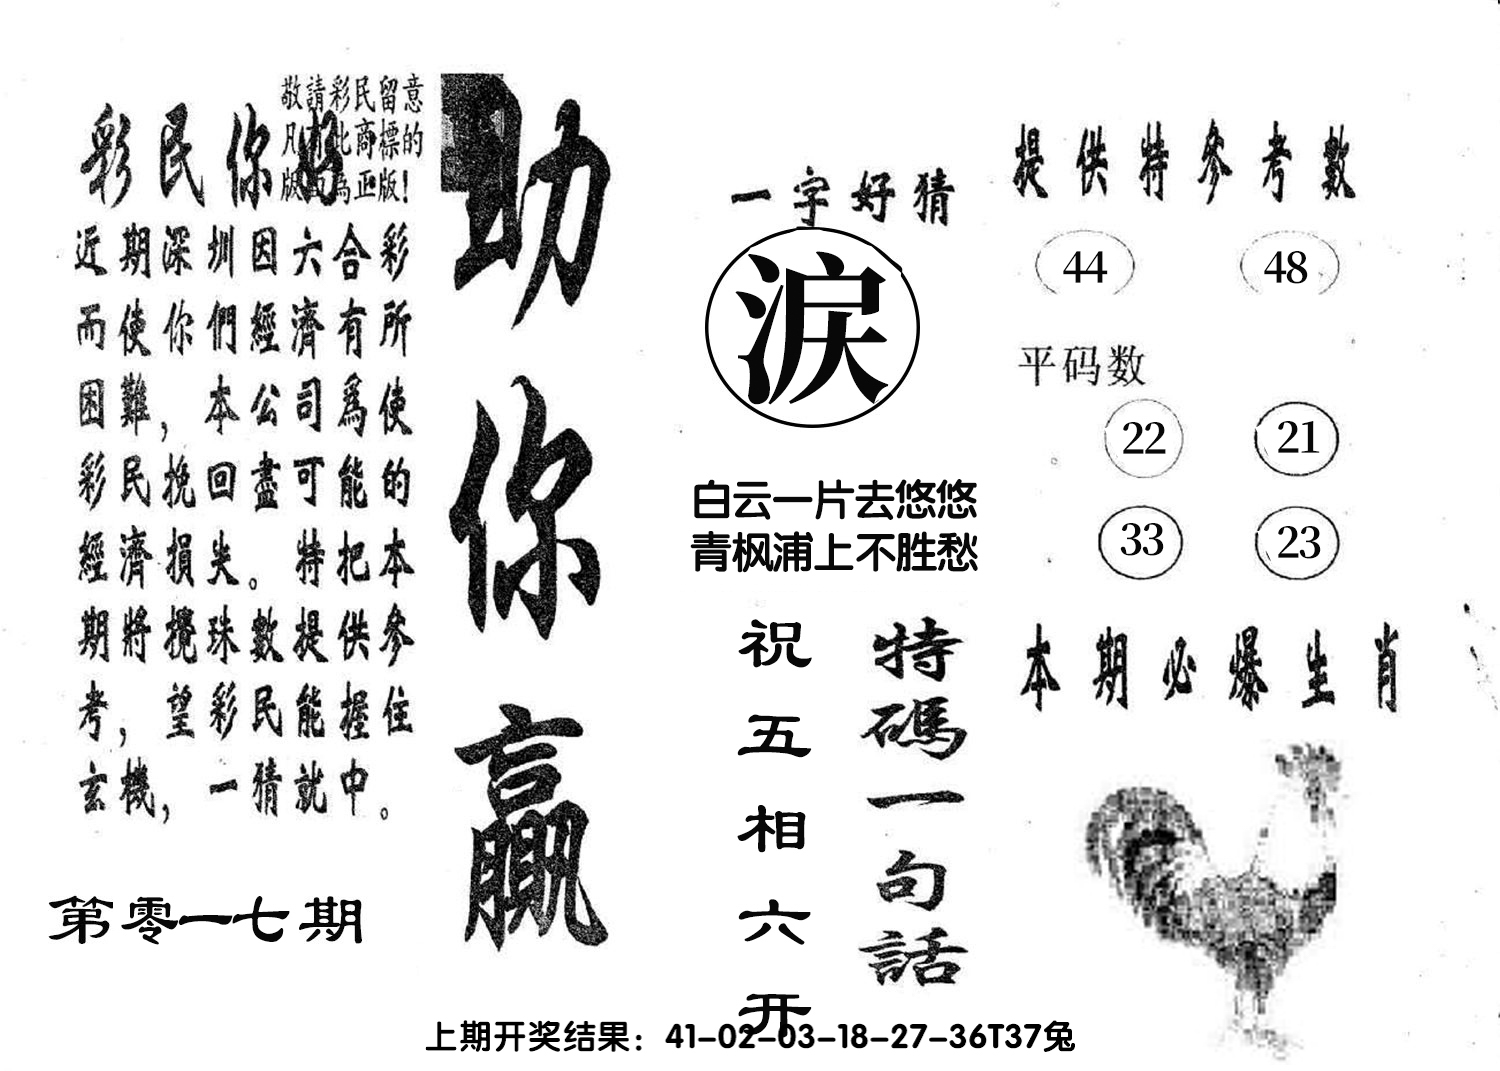 敬請彩民留意
凡有此商標的
版面為正版！
彩民你好
近期深圳因六合彩
而使你們經濟有所
困難，本公司爲使
彩民挽回盡可能的
經濟損失。特把本
期將攪珠數提供參
考，望彩民能握住
玄機，一猜就中。
第零一七期
助你贏
一字好猜
淚
白云一片去悠悠
青枫浦上不胜愁
特碼一句話
祝五相六开
提供特參考數
44 48
平码数
22 21
33 23
本期必爆生肖
上期开奖结果：41-02-03-18-27-36T37兔